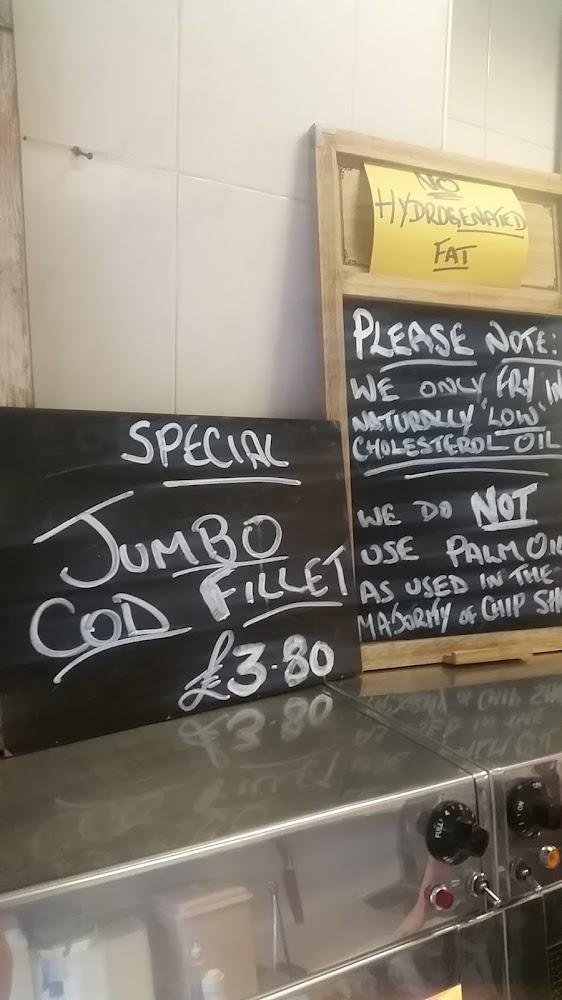 SPECIAL
JUMBO
COD FILLET
£3.80
NO
HYDROGENATED
FAT
PLEASE NOTE:
WE ONLY FRY IN
NATURALLY 'LOW'
CHOLESTEROL OIL
WE DO NOT
USE PALM OIL
AS USED IN THE
MAJORITY OF CHIP SH
FULL
ON